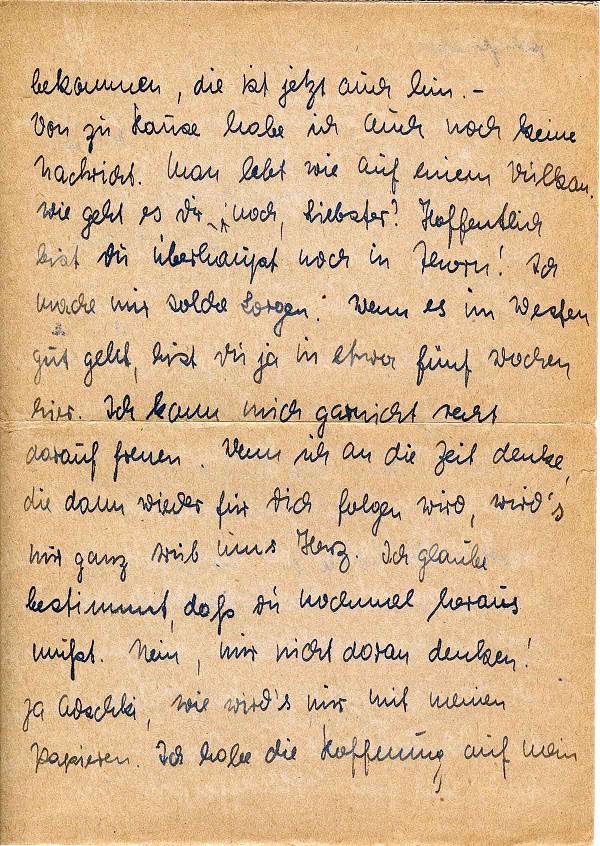 bekommen, die ist jetzt auch hin. –
Von zu Hause habe ich auch noch keine
Nachricht. Man lebt wie auf einem Vulkan.
Wie geht es Dir noch, Liebster? Hoffentlich
bist Du überhaupt noch in Thorn! Ich
mache mir solche Sorgen. Wenn es im Westen
gut geht, bist Du ja in etwa fünf Wochen
hier. Ich kann mich garnicht recht
darauf freuen. Wenn ich an die Zeit denke,
die dann wieder für Dich folgen wird, wird's
mir ganz weh ums Herz. Ich glaube
bestimmt, daß Du nochmal heraus
mußt. Nein, nur nicht daran denken!
Ja, wie wird's nur mit meinen
Papieren. Ich habe die Hoffnung auf mein